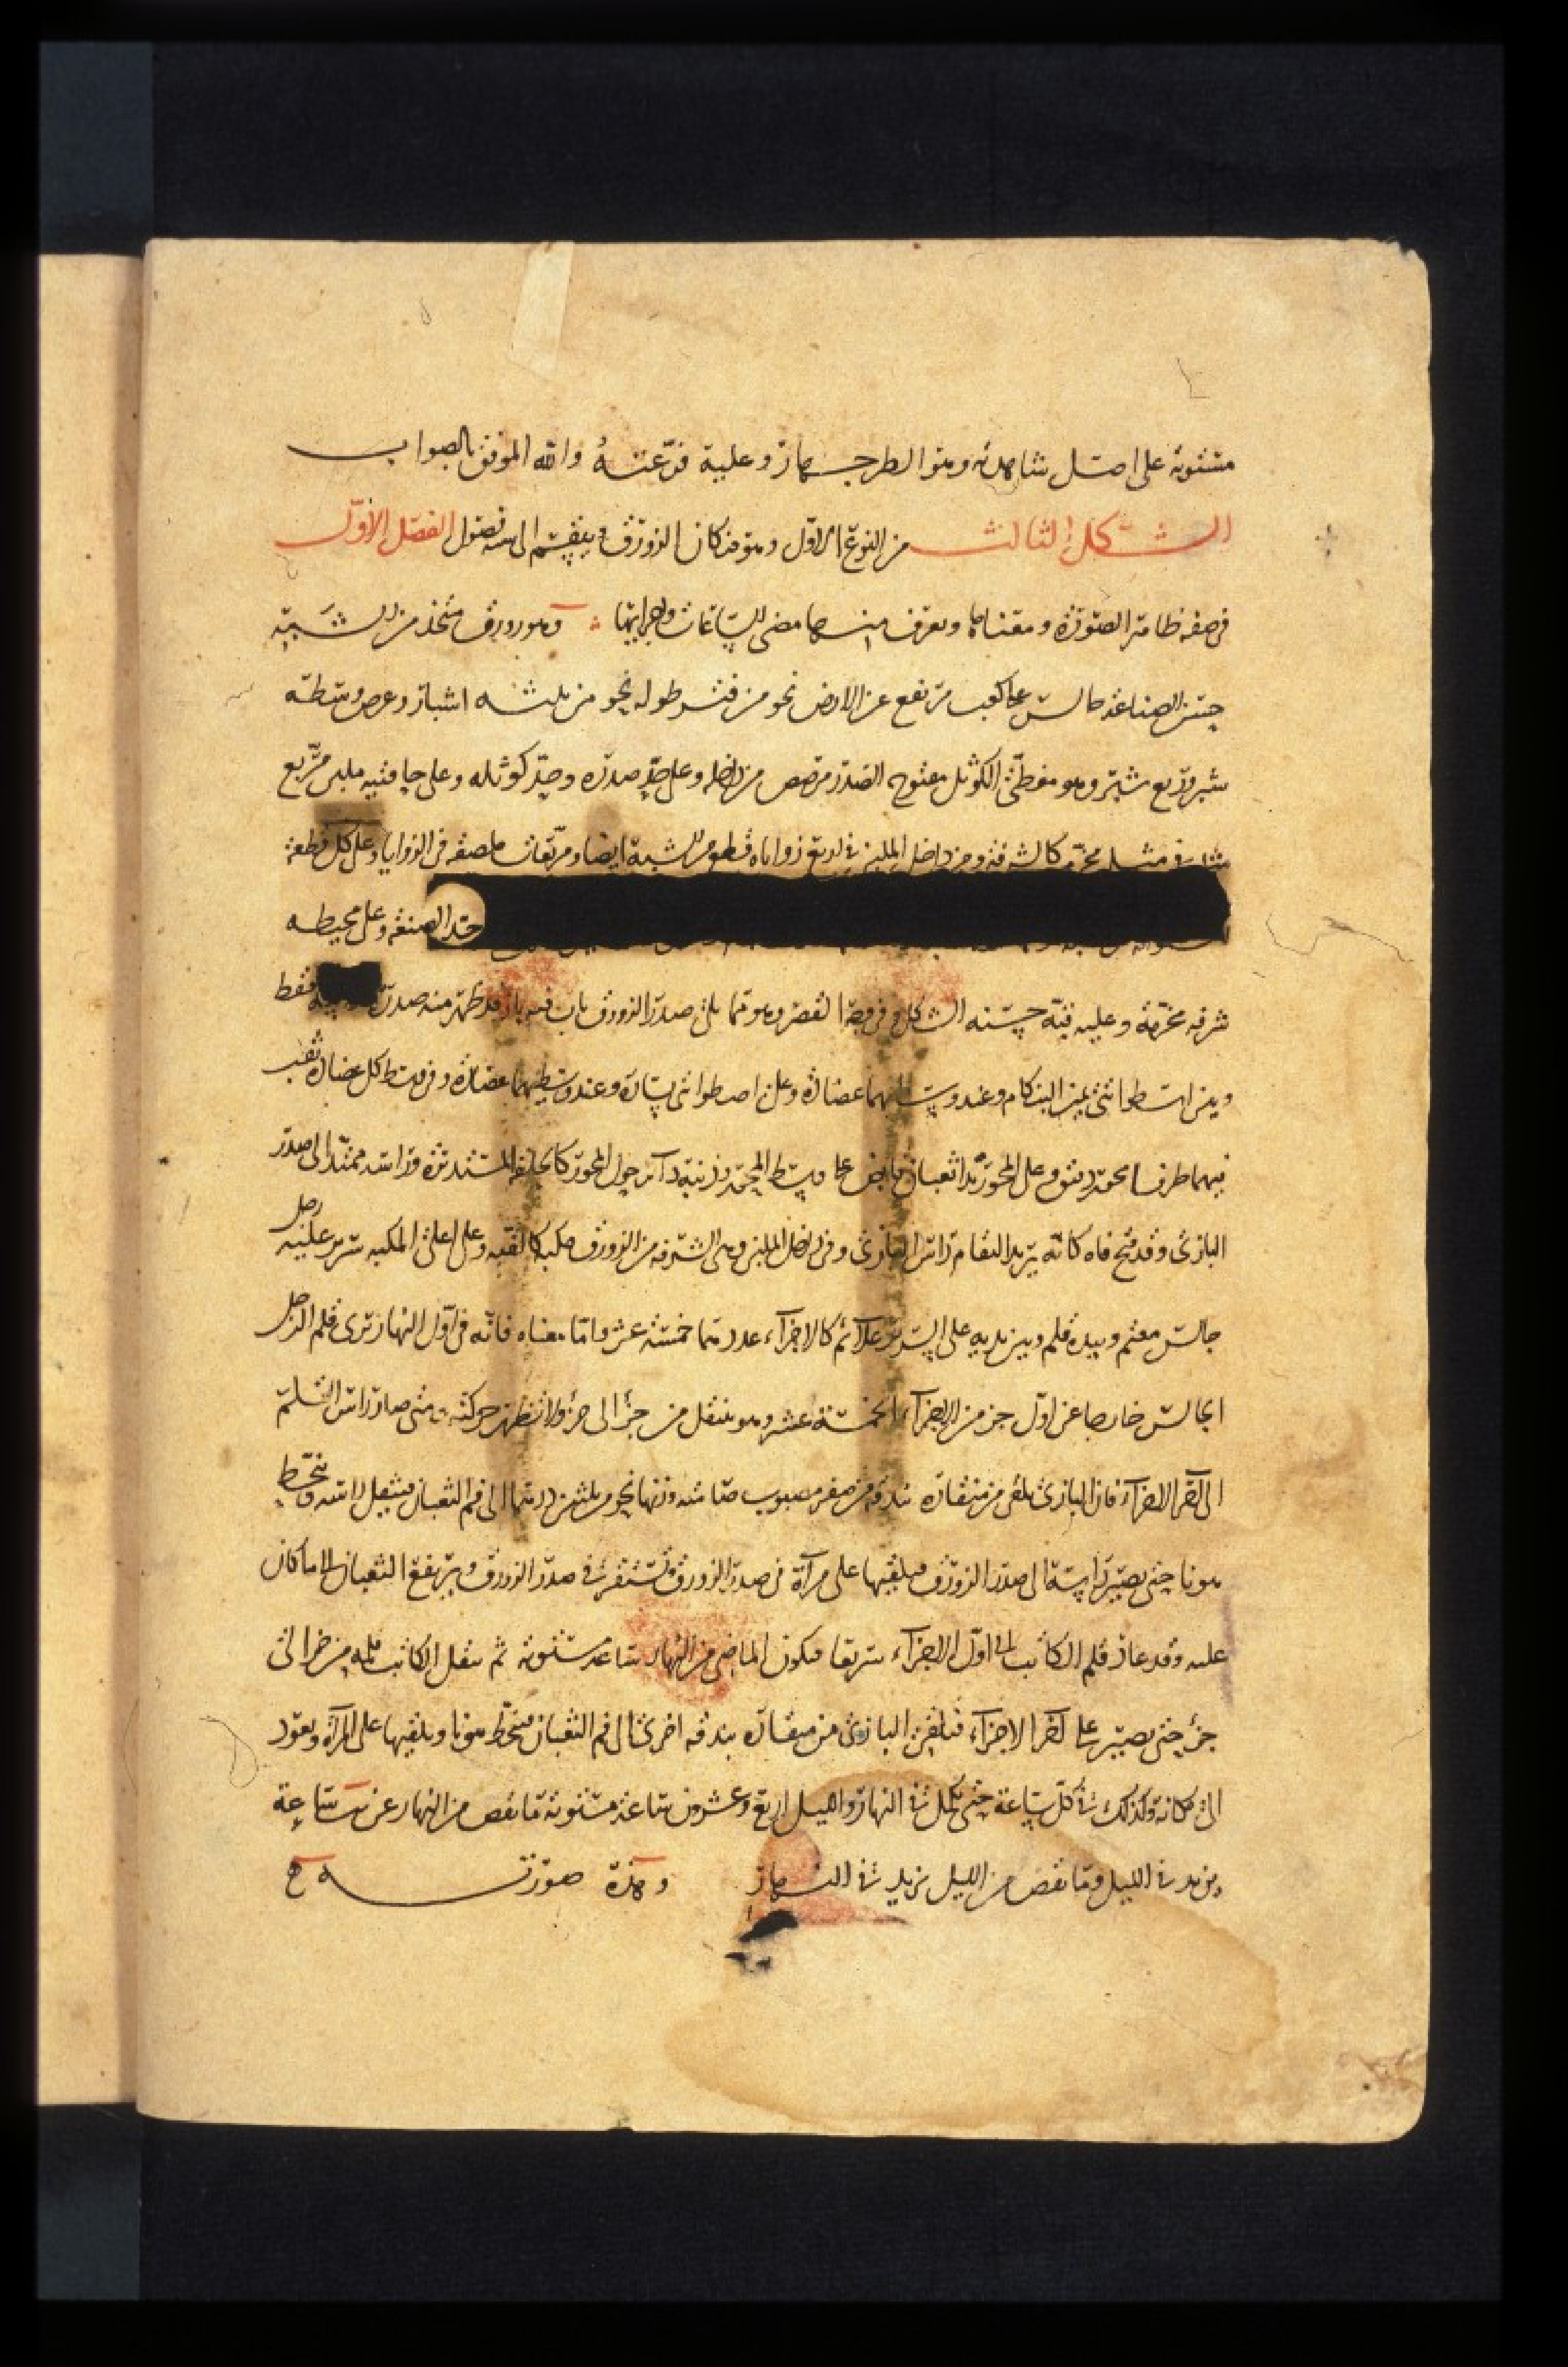 مستوية على اصل شاهدته وهو الطرجهار وعليه فرّعته والله الموفق بالصواب
الشكل الثالث من النوع الاول وهو فنكان الزورق وينقسم الى ستة فصول الفصل الأوّل
في صفة ظاهر الصورة ومعناها ويعرف منها مضى الساعات واجزائها وهو زورق متخذ من الشبه
حسن الصناعة جالس على كعب مرتفع عن الارض نحو من فتر طوله نحو من ثلثة اشبار وعرض وسطه
شبر وربع شبر وهو مغطّى الكوثل مفتوح الصدر مرصص من داخله وعلى حدّ صدره وحدّ كوثله وعلى حافتيه ملبن مربّع
كالشرفة ومن داخل الملبن في اربع زواياه قطع من الشبه ايضا مربّعات ملصقة في الزوايا وعلى كل قطعة
الصنعة وعلى محيطه
شرفة مخرّمة وعليه قبّة حسنة الشكل وفي وجه القصر وهو مما يلى صدر الزورق باب فيه باز قد ظهر منه صدره فقط
وبين اسطوانتى يمين البنكام وعند وسطهما عضادة وعلى اصطوانتى يساره وعند وسطيهما عضادة وفى وسط كل عضادة ثقب
فيهما طرفا محور دقيق وعلى المحور يدا ثعبان قابض على وسط المحور وذنبه دائر حول المحور كالحلقة المستديرة ورأسه ممتدّ الى صدر
البازى وقد فتح فاه كانّه يريد التقام رأس البازى وفى داخل الملبن وهى الشرفة من الزورق مكبة كالقبّة وعلى اعلى المكبه سرير عليه رجل
جالس معتم وبيده قلم وبين يديه على السرير علائم كالاجزاء عددها خمسة عشر واما معناه فانّه في اوّل النهار ترى قلم الرجل
الجالس خارجا عن اوّل جزء من الاجزاء الخمسة عشر وهو ينتقل من جزء الى جزء ولا تظهر حركته متى صار رأس القلم
الى آخر الاجزاء فان البازى يلقى من منقاره بندقة من صفر مصبوب صامتة وزنها نحو من ثلثين درهما الى فم الثعبان فيثقل رأسه وينحطّ
هونا حتى يصير رأسه الى صدر الزورق فيلقيها على مرآة فى صدر الزورق وتستقرّ في صدر الزورق ويرتفع الثعبان الى ما كان
عليه وقد عاد قلم الكاتب الى اوّل الاجزاء سريعا فيكون الماضى من النهار ساعة مستوية ثم ينقل الكاتب قلمه من جزء الى
جزء حتى يصير على آخر الاجزاء فيلقى البازى من منقاره بندقة اخرى الى فم الثعبان فينحطّ هونا ويلقيها على المرآة ويعود
الى مكانه وكذلك في كلّ ساعة حتى تكمل في النهار والليل اربع وعشرون ساعة مستوية ما نقص من النهار عن ساعة
يزيد في الليل وما نقص من الليل يزيد في النهار وهذه صورته ح